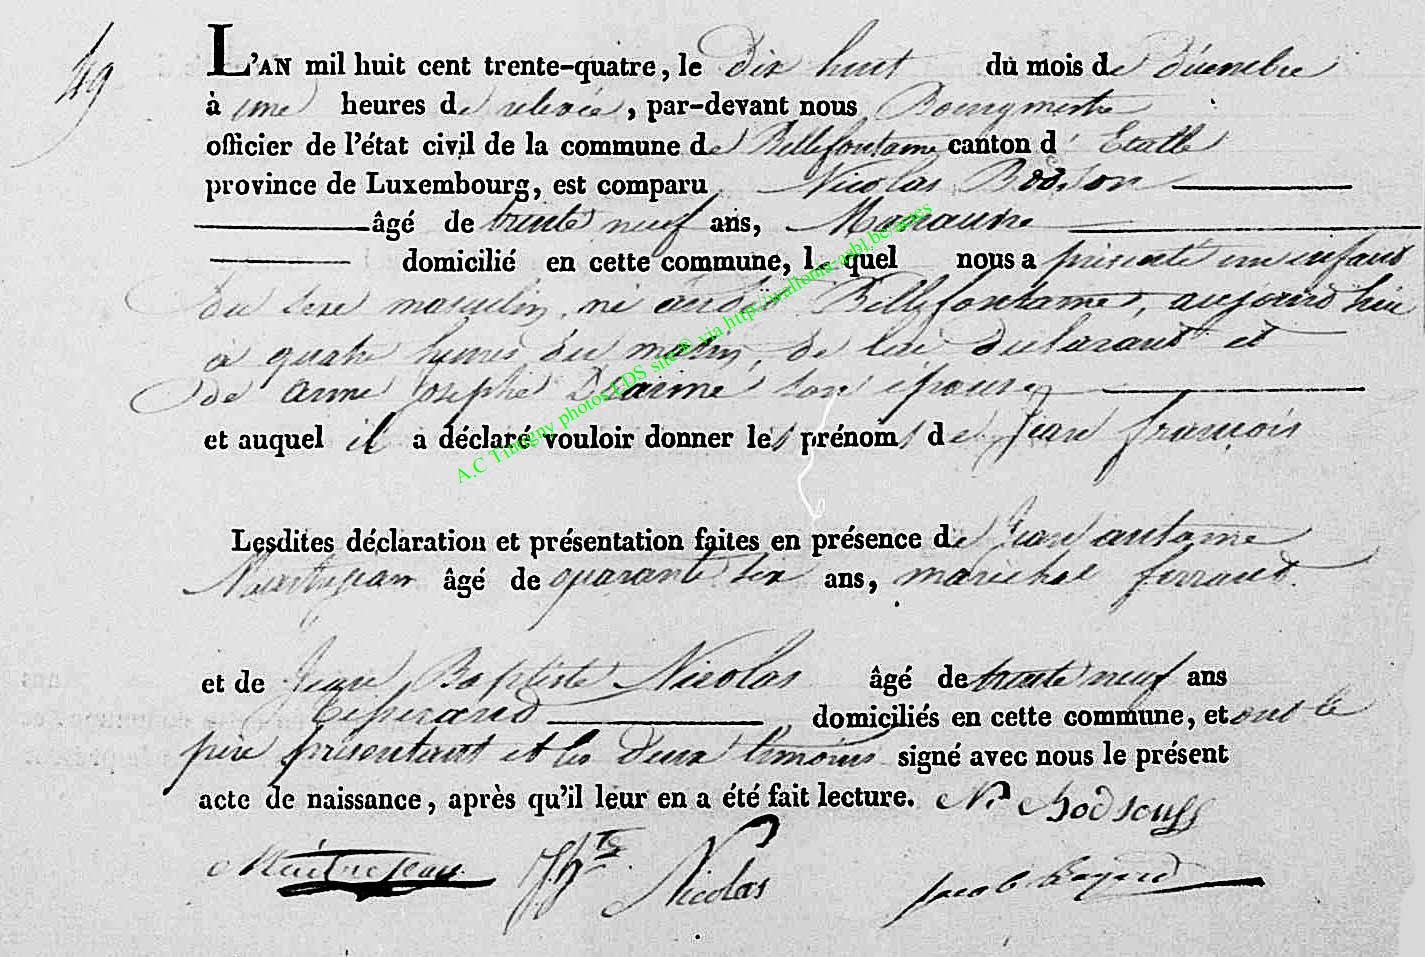 49
L'AN mil huit cent trente-quatre, le dix huit du mois de décembre
à une heures de relevée, par-devant nous Bourgmestre
officier de l'état civil de la commune de Bellefontaine canton d'Etalle
province de Luxembourg, est comparu Nicolas Bodson
âgé de trente neuf ans, Manœuvre
domicilié en cette commune, lequel nous a présenté un enfant
du sexe masculin, né audit Bellefontaine, aujourd'hui
à quatre heures du matin, de lui déclarant et
de anne Josephe son épouse
et auquel il a déclaré vouloir donner les prénoms de Jean françois
Lesdites déclaration et présentation faites en présence de Jean antoine
Maitrejean âgé de quarante six ans, maréchal ferrant.
et de Jean Baptiste Nicolas âgé de trente neuf ans
Tisserand domiciliés en cette commune, et ont le
père présentant et les deux témoins signé avec nous le présent
acte de naissance, après qu'il leur en a été fait lecture. N. Bodson
Maitrejean Jh Bte Nicolas Jacob
A.C Tintigny photos LDS site © via http://wallonia-asbl.be/actes